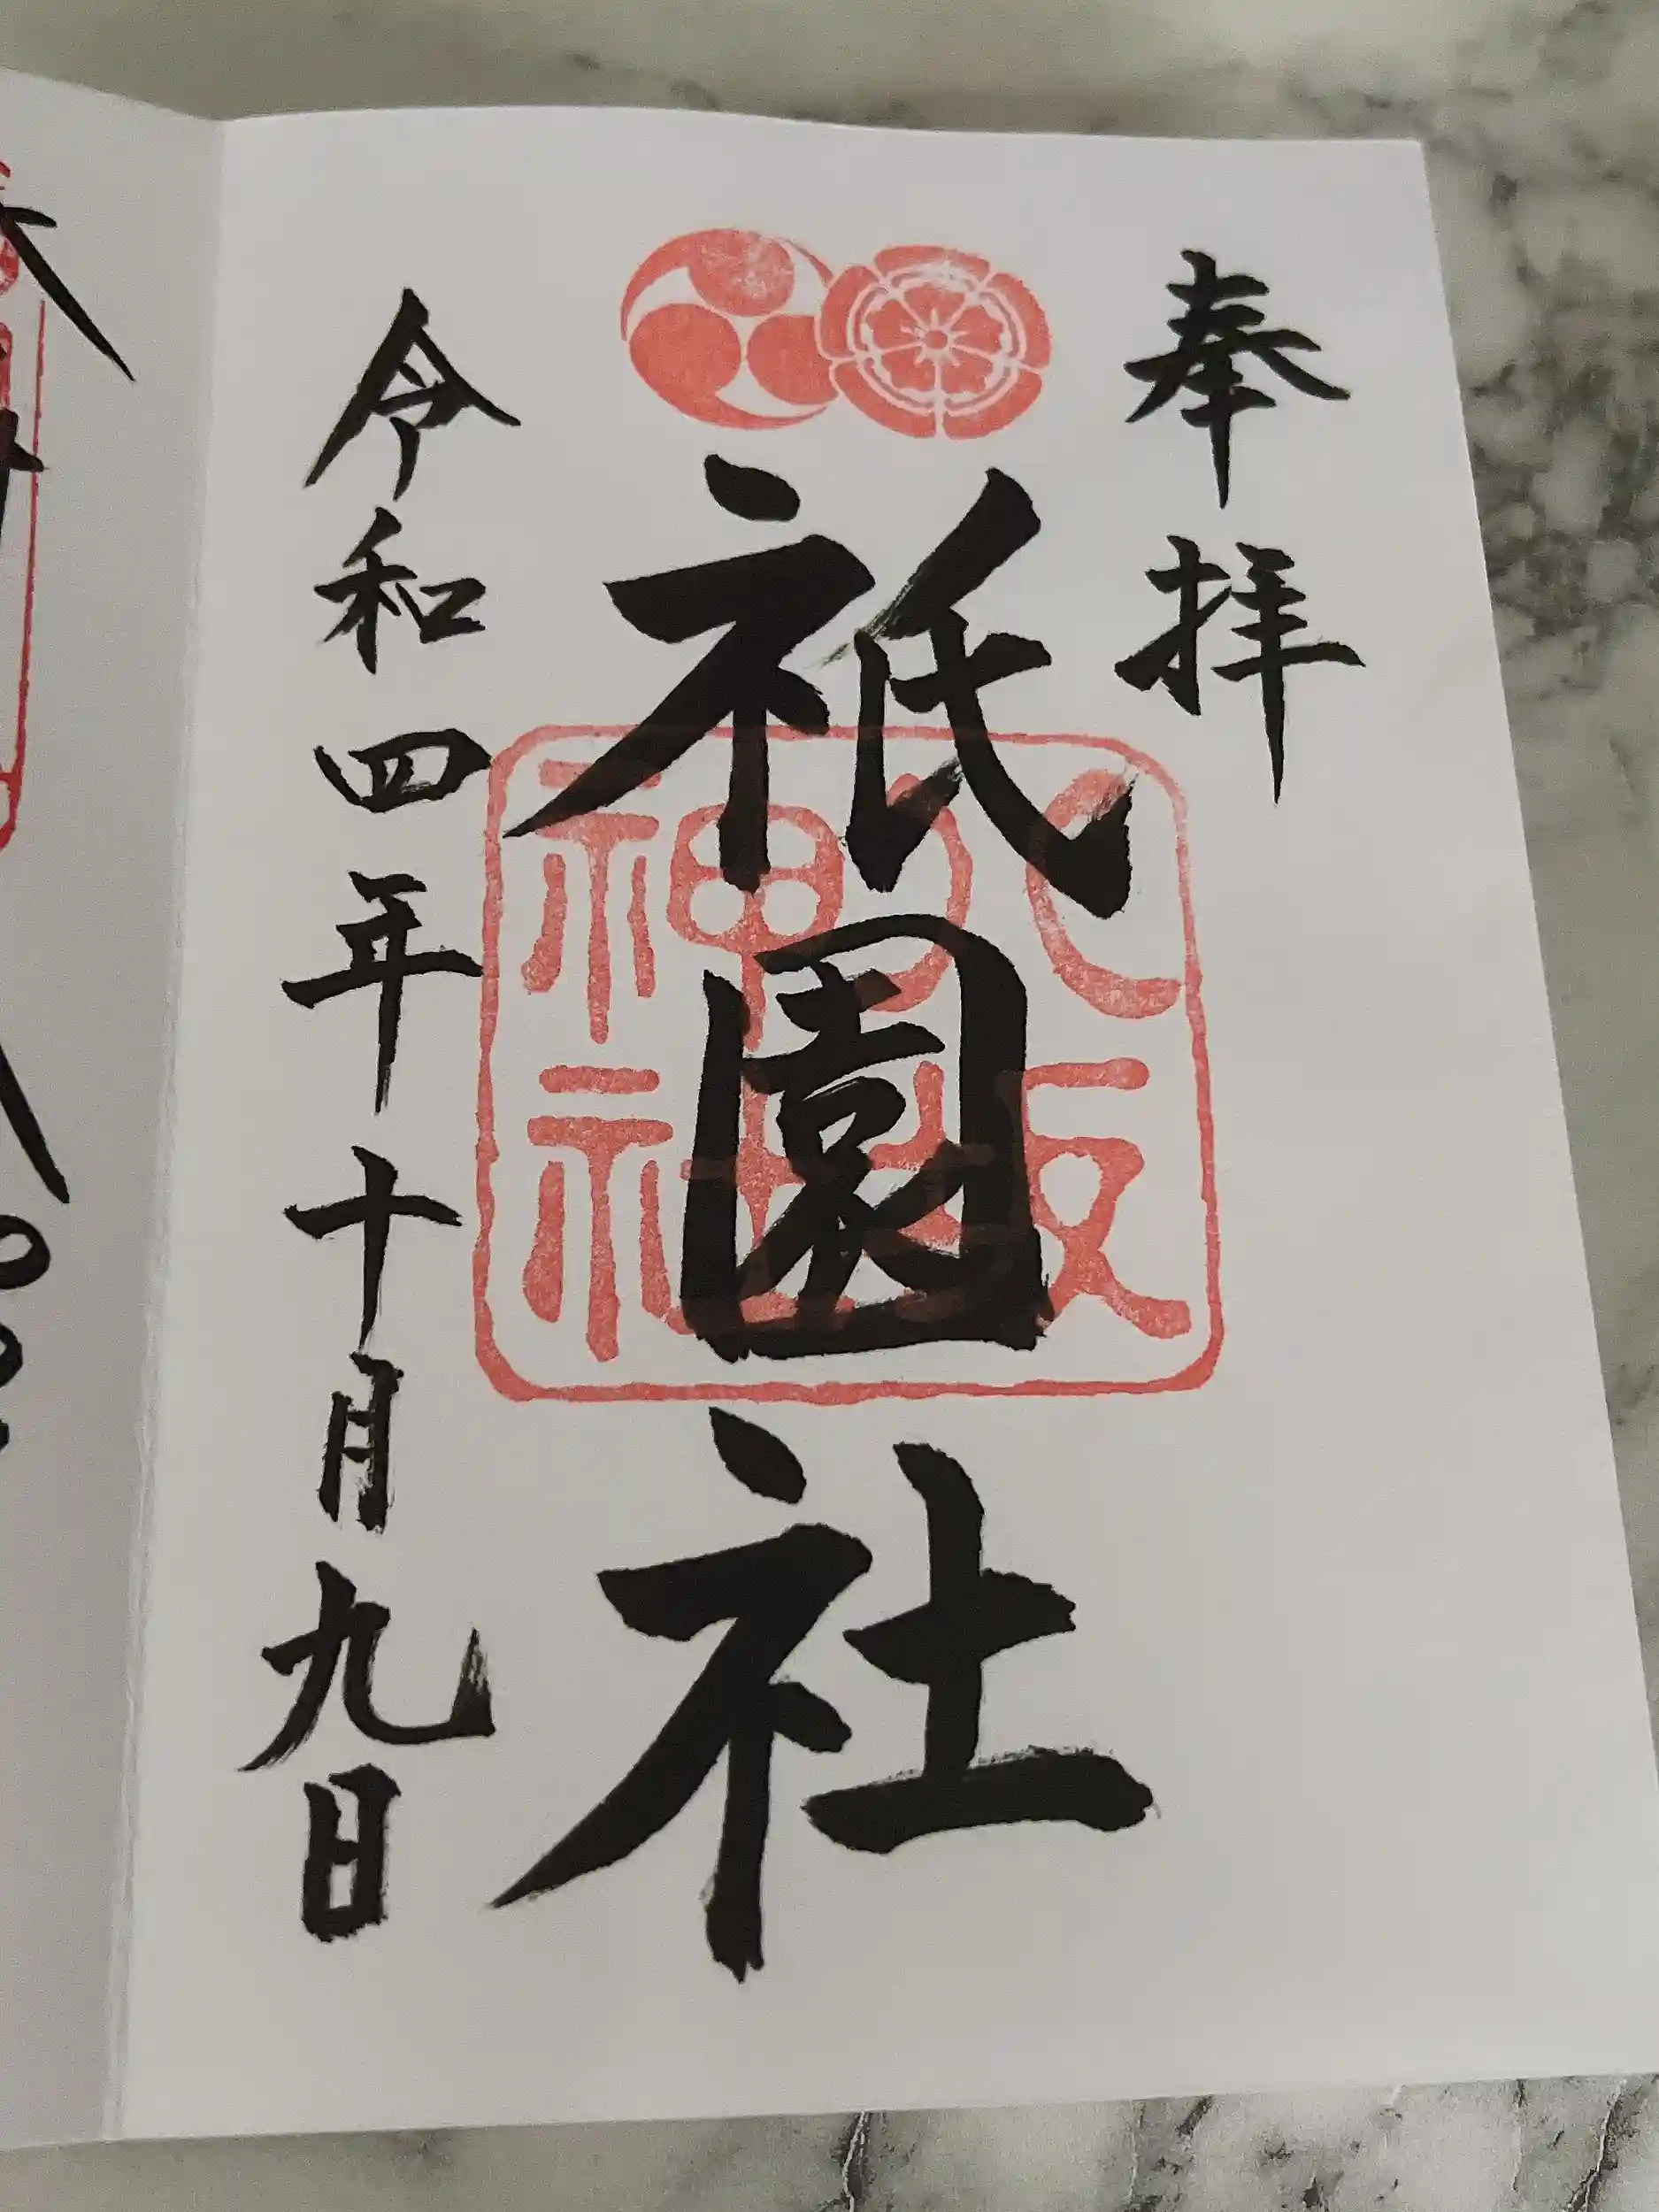 奉拝
祇園社
八坂神社
令和四年十月九日